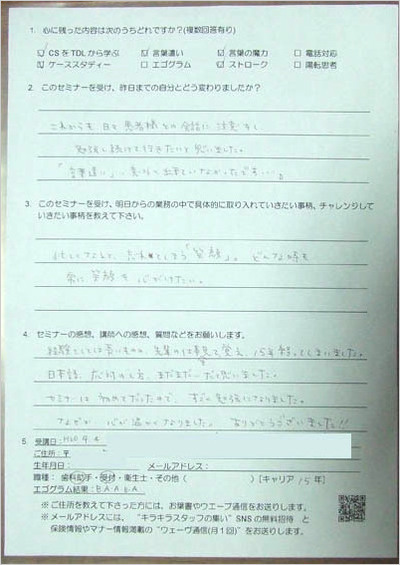 1. 心に残った内容は次のうちどれですか?(複数回答有り)
☑ CSをTDLから学ぶ ☑ 言葉遣い ☑ 言葉の魔力 □ 電話対応
☑ ケーススタディー □ エゴグラム ☑ ストローク □ 陽転思考
2. このセミナーを受け、昨日までの自分とどう変わりましたか?
これからも 日々 患者様との会話に 注意をし
勉強し続けて行きたいと思いました。
「言葉遣い」、意外と出来ていなかったです…。
3. このセミナーを受け、明日からの業務の中で具体的に取り入れていきたい事柄、チャレンジして
いきたい事柄を教えて下さい。
忙しくなると、忘れてしまう「笑顔」。どんな時も
常に 笑顔を 心がけたい。
4. セミナーの感想、講師への感想、質問などをお願いします。
経験としては長いものの、先輩の仕事見て覚え、15年経ってしまいました。
日本語、だけの し方、まだまだ…だと思いました。
セミナーは 初めてだったので、すごく勉強になりました。
なぜか 心が温かくなりました。ありがとうございました!!
5. 受講日:H20.9.4
ご住所:〒
生年月日: メールアドレス:
職種: 歯科助手・受付・衛生士・その他( )[キャリア 15年]
エゴグラム結果:BAABA
※ご住所を教えて下さった方には、お葉書やウエーブ通信をお送りします。
※メールアドレスには、“キラキラスタッフの集い”SNSの無料招待 と
保険情報やマナー情報満載の“ウェーヴ通信(月1回)”をお送りします。